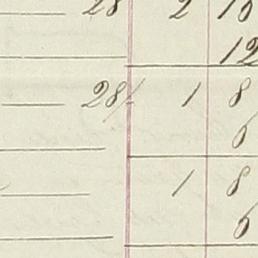 28 2 10
12
28/ 1 8
6
1 8
6